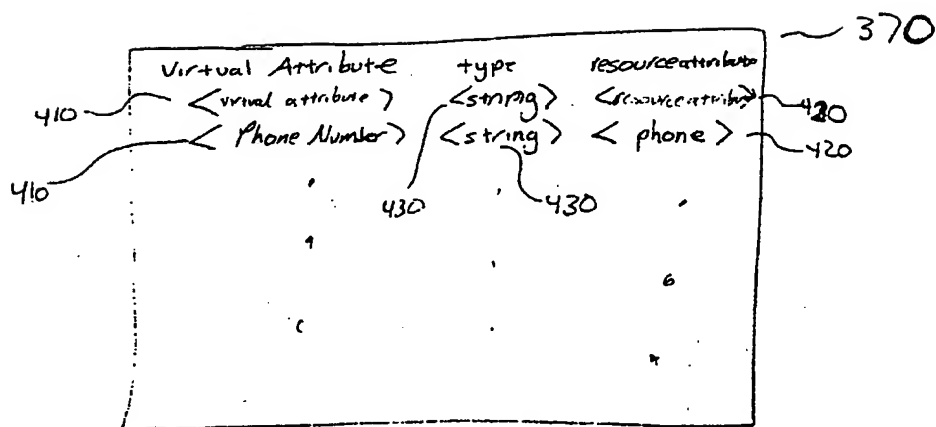 370
Virtual Attribute type resourceattribute
410 <virtual attribute> <string> <resourceattribute> 420
<Phone Number> <string> <phone> 420
410 430 430